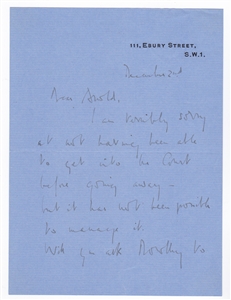 111, EBURY STREET,
S.W.1.
December 2nd
Dear Arnold.
I am terribly sorry
at not having been able
to get into the Court
before going away –
but it has not been possible
to manage it.
Will you ask Dorothy to